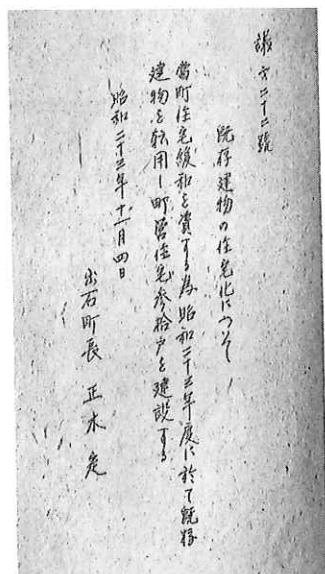 議第二十二號
既存建物の住宅化について
當町住宅緩和を資する為昭和二十三年度に於て既存
建物を転用し町営住宅参拾戸を建設する
昭和二十三年十一月四日
出石町長 正木